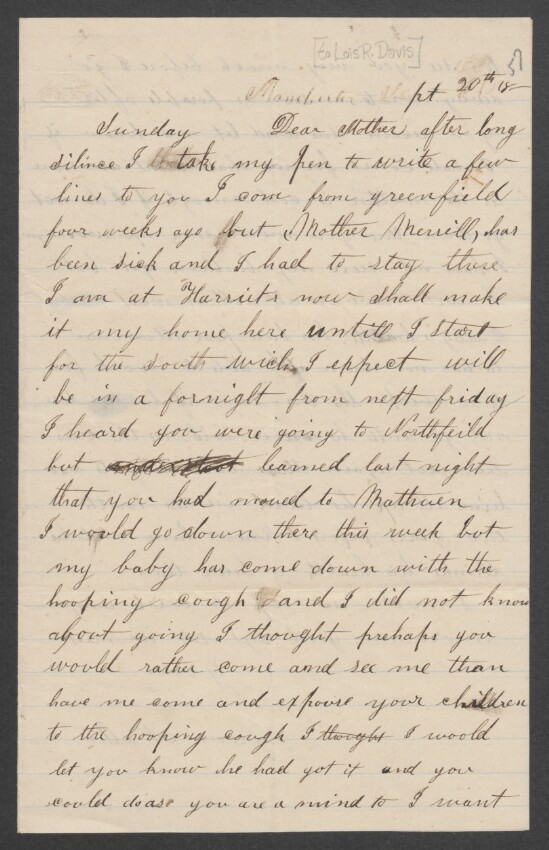 [to Lois R. Davis]
Manchester Sept 20th 18
Sunday Dear Mother after long
silince I take my pen to write a few
lines to you I com from greenfield
four weeks ago but Mother Merrill, has
been sick and I had to stay there
I am at Harriets now shall make
it my home here untill I start
for the south wich I expect will
be in a fornight from next friday
I heard you were going to Northfeild
but understoot learned last night
that you had moved to Mathuen
I would go down there this week but
my baby has come down with the
hooping cough and I did not know
about going I thought prehaps you
would rather come and see me than
have me come and expouse your children
to the hooping cough I thought I woold
let you know he had got it and you
could do ase you are a mind to I want